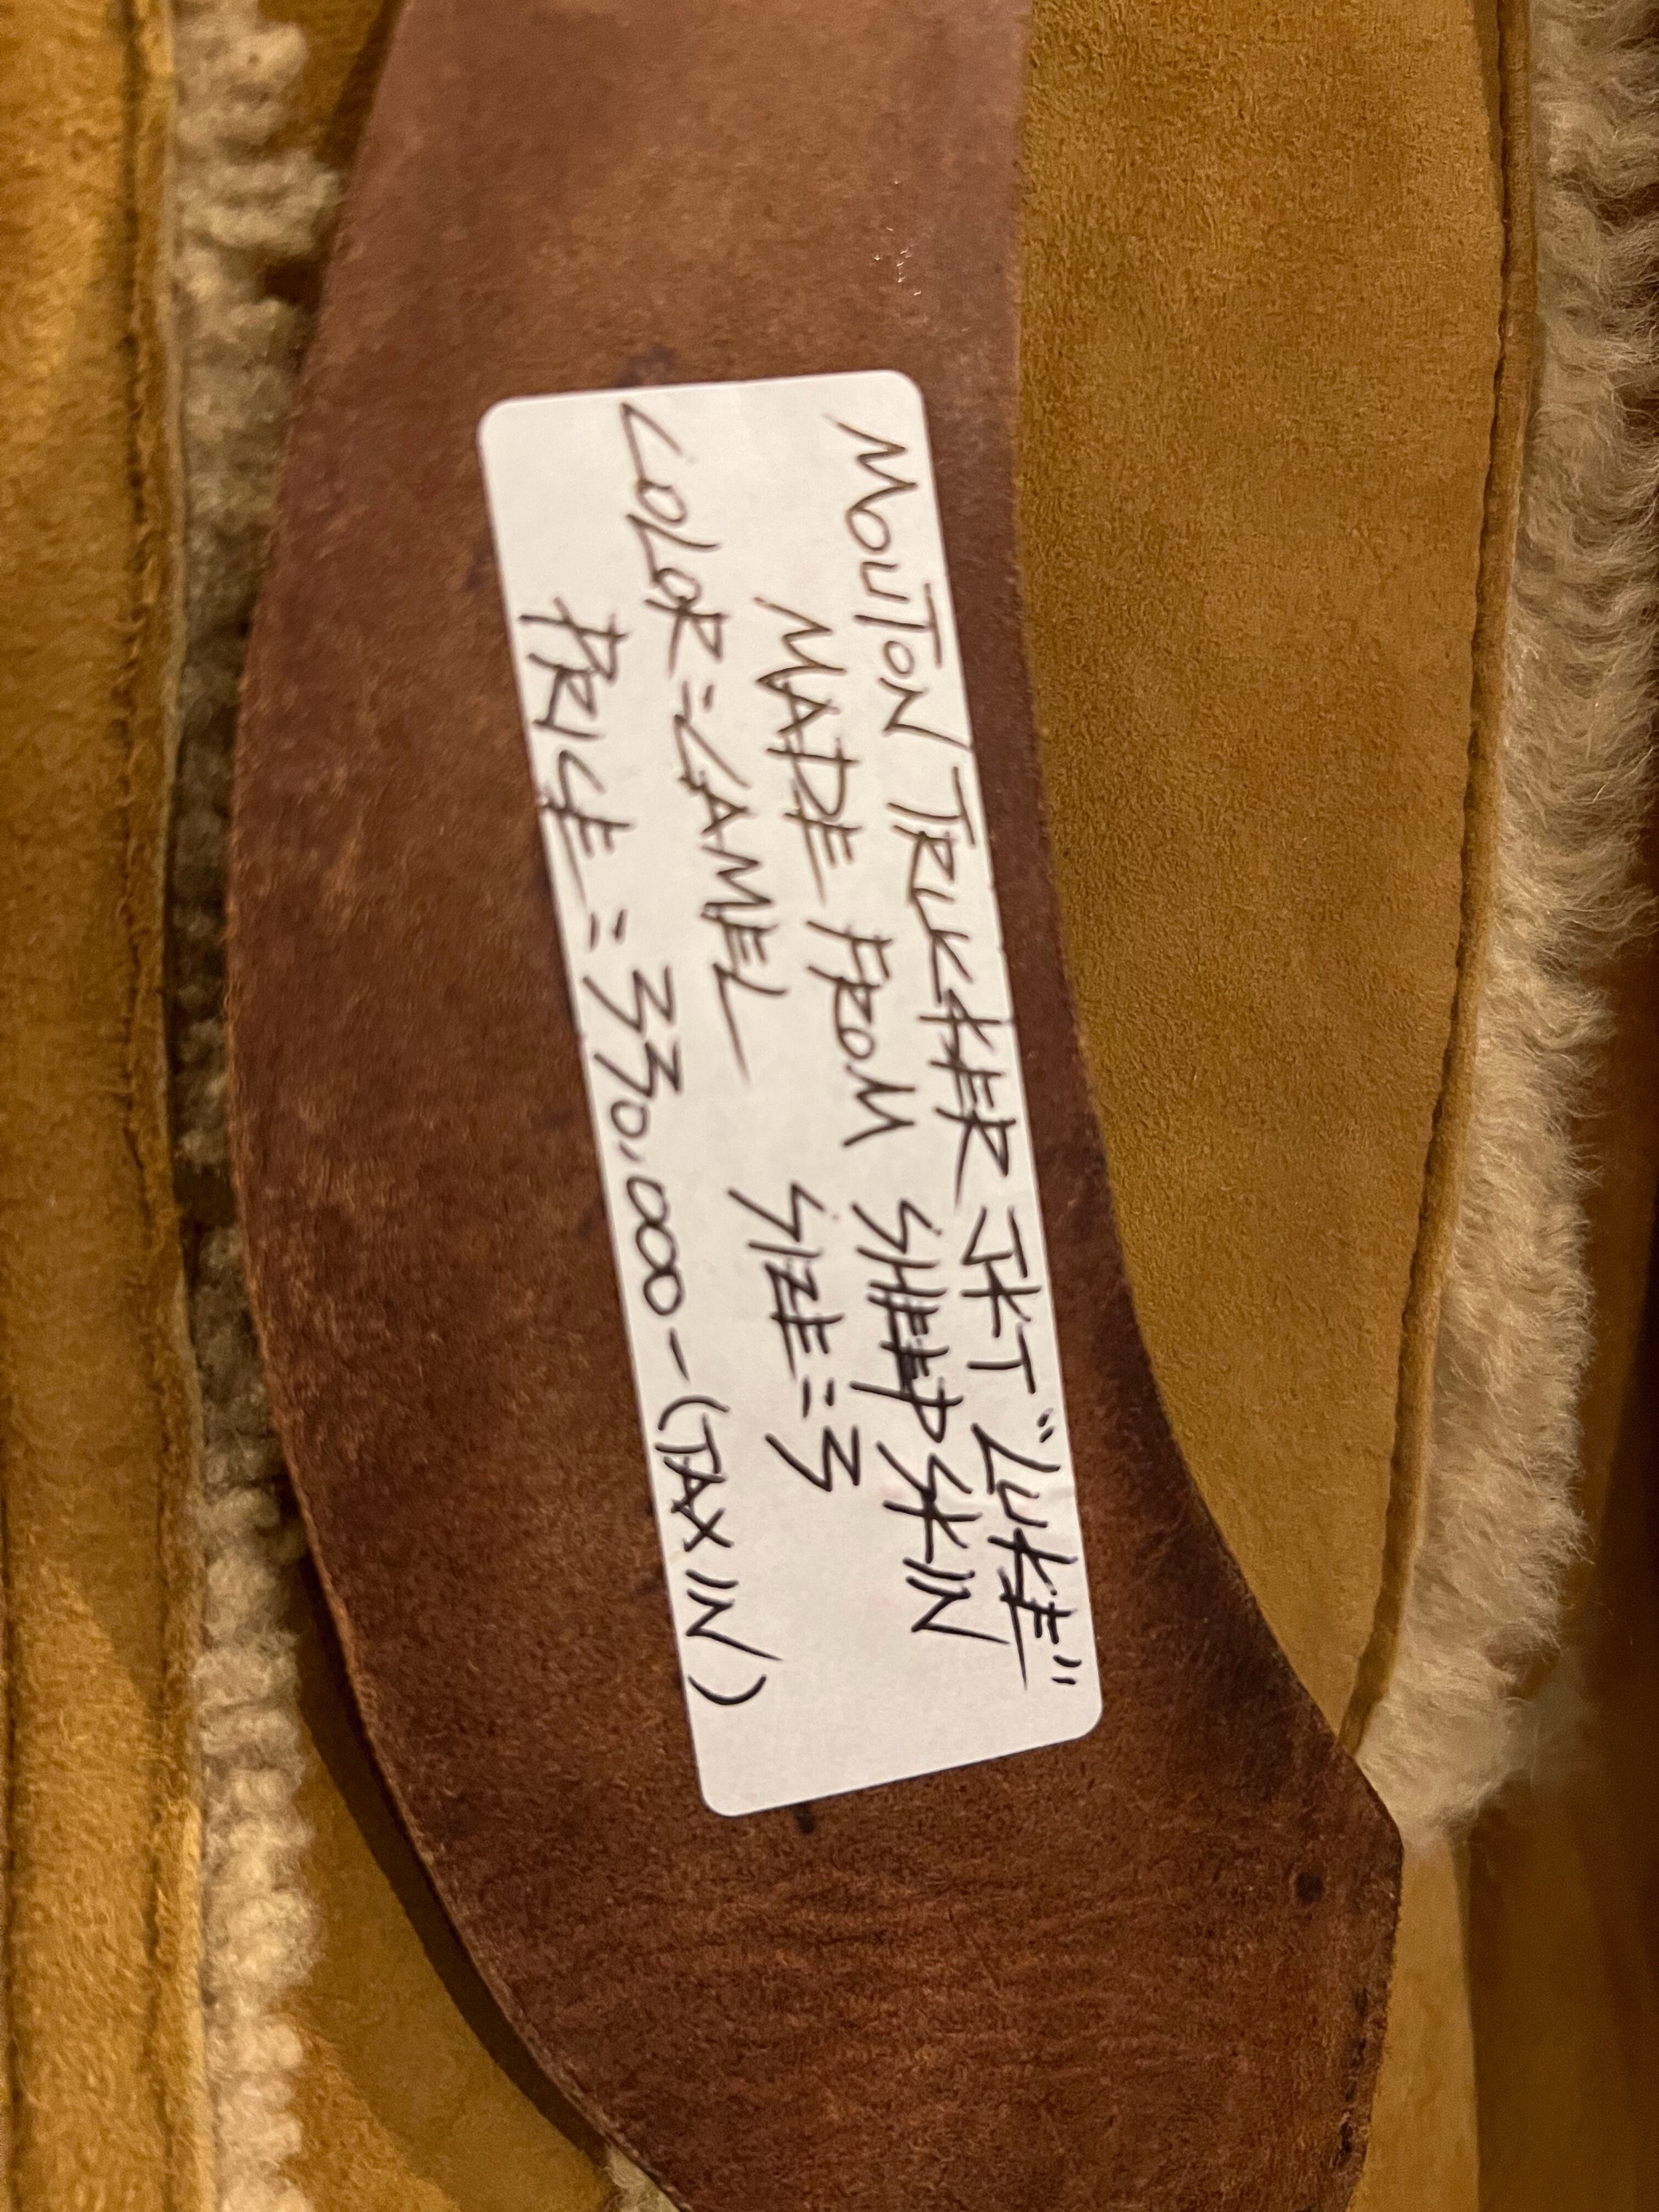 MOUTON TRUCKER JKT "LUKE"
MADE FROM SHEEP SKIN
COLOR=CAMEL SIZE=3
PRICE=330,000-(TAX IN)